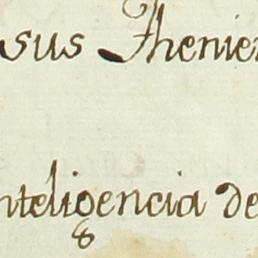 sus Thenien
nteligencia de